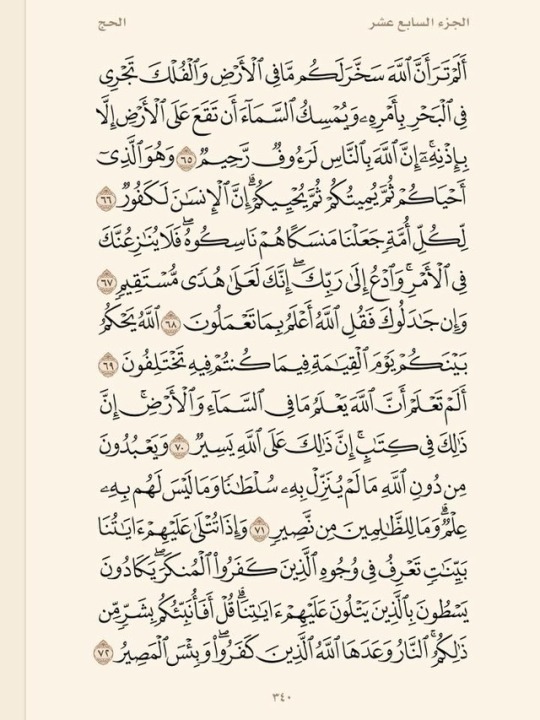 الجزء السابع عشر
الحج
أَلَمْ تَرَ أَنَّ ٱللَّهَ سَخَّرَ لَكُم مَّا فِى ٱلْأَرْضِ وَٱلْفُلْكَ تَجْرِى
فِى ٱلْبَحْرِ بِأَمْرِهِۦ وَيُمْسِكُ ٱلسَّمَآءَ أَن تَقَعَ عَلَى ٱلْأَرْضِ إِلَّا
بِإِذْنِهِۦٓ ۗ إِنَّ ٱللَّهَ بِٱلنَّاسِ لَرَءُوفٌ رَّحِيمٌ ٦٥ وَهُوَ ٱلَّذِىٓ
أَحْيَاكُمْ ثُمَّ يُمِيتُكُمْ ثُمَّ يُحْيِيكُمْ ۗ إِنَّ ٱلْإِنسَـٰنَ لَكَفُورٌ ٦٦
لِّكُلِّ أُمَّةٍ جَعَلْنَا مَنسَكًا هُمْ نَاسِكُوهُ ۖ فَلَا يُنَـٰزِعُنَّكَ
فِى ٱلْأَمْرِ ۚ وَٱدْعُ إِلَىٰ رَبِّكَ ۖ إِنَّكَ لَعَلَىٰ هُدًى مُّسْتَقِيمٍ ٦٧
وَإِن جَـٰدَلُوكَ فَقُلِ ٱللَّهُ أَعْلَمُ بِمَا تَعْمَلُونَ ٦٨ ٱللَّهُ يَحْكُمُ
بَيْنَكُمْ يَوْمَ ٱلْقِيَـٰمَةِ فِيمَا كُنتُمْ فِيهِ تَخْتَلِفُونَ ٦٩
أَلَمْ تَعْلَمْ أَنَّ ٱللَّهَ يَعْلَمُ مَا فِى ٱلسَّمَآءِ وَٱلْأَرْضِ ۗ إِنَّ
ذَٰلِكَ فِى كِتَـٰبٍ ۚ إِنَّ ذَٰلِكَ عَلَى ٱللَّهِ يَسِيرٌ ٧٠ وَيَعْبُدُونَ
مِن دُونِ ٱللَّهِ مَا لَمْ يُنَزِّلْ بِهِۦ سُلْطَـٰنًا وَمَا لَيْسَ لَهُم بِهِۦ
عِلْمٌ ۗ وَمَا لِلظَّـٰلِمِينَ مِن نَّصِيرٍ ٧١ وَإِذَا تُتْلَىٰ عَلَيْهِمْ ءَايَـٰتُنَا
بَيِّنَـٰتٍ تَعْرِفُ فِى وُجُوهِ ٱلَّذِينَ كَفَرُوا۟ ٱلْمُنكَرَ ۖ يَكَادُونَ
يَسْطُونَ بِٱلَّذِينَ يَتْلُونَ عَلَيْهِمْ ءَايَـٰتِنَا ۗ قُلْ أَفَأُنَبِّئُكُم بِشَرٍّ مِّن
ذَٰلِكُمُ ۗ ٱلنَّارُ وَعَدَهَا ٱللَّهُ ٱلَّذِينَ كَفَرُوا۟ ۖ وَبِئْسَ ٱلْمَصِيرُ ٧٢
٣٤٠